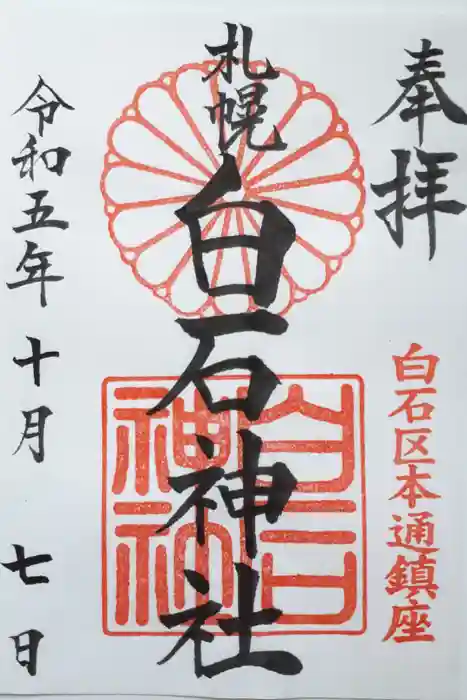 奉拝
白石区本通鎮座
札幌
白石神社
白石
神社
令和五年十月七日